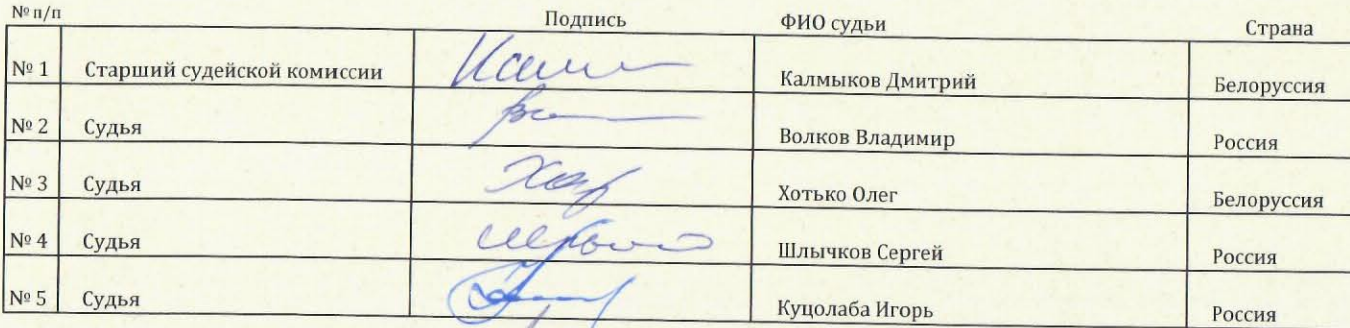 № п/п Подпись ФИО судьи Страна
№ 1 Старший судейской комиссии Калмыков Дмитрий Белоруссия
№ 2 Судья Волков Владимир Россия
№ 3 Судья Хотько Олег Белоруссия
№ 4 Судья Шлычков Сергей Россия
№ 5 Судья Куцолаба Игорь Россия